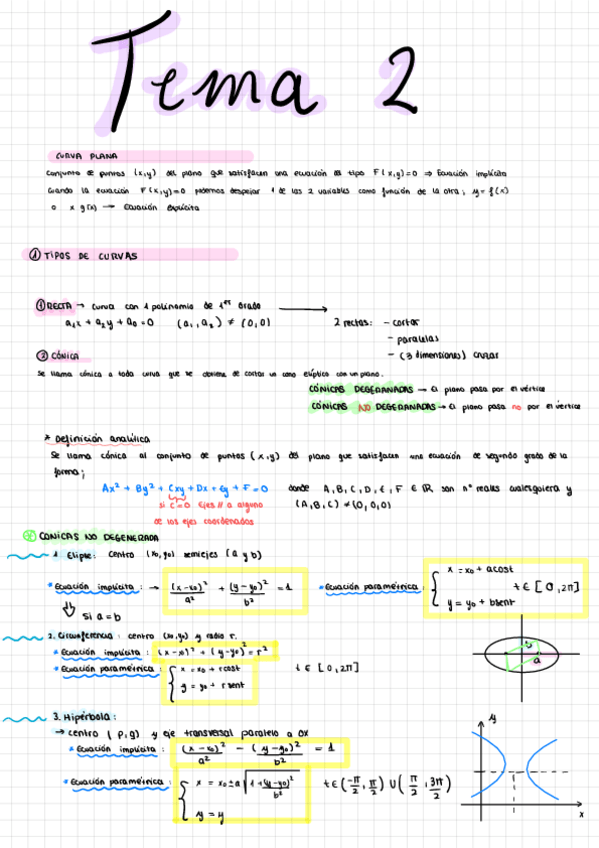 Tema 2
CURVA PLANA
Conjunto de puntos (x,y) del plano que satisfacen una ecuación de tipo F(x,y)=0 ⇒ Ecuación implícita
Cuando la ecuación F(x,y)=0 podemos despejar 1 de las 2 variables como función de la otra; y=f(x)
o x g(x) → Ecuación explícita
① TIPOS DE CURVAS
① RECTA → Curva con 1 polinomio de 1er Grado →
a₁x + a₂y + a₀ = 0 (a₁,a₂) ≠ (0,0)
2 rectas: - cortar
- paralelas
- (3 dimensiones) cruzar
② CÓNICA
Se llama cónica a toda curva que se obtiene de cortar un cono elíptico con un plano.
CÓNICAS DEGERANADAS → El plano pasa por el vértice
CÓNICAS NO DEGERANADAS → El plano pasa no por el vértice
* Definición analítica
Se llama cónica al conjunto de puntos (x,y) del plano que satisfacen una ecuación de segundo grado de la
forma;
Ax² + By² + Cxy + Dx + Ey + F = 0 donde A, B, C, D, E, F ∈ ℝ son nº reales cualesquiera y
si C=0 Ejes // a alguno (A,B,C) ≠ (0,0,0)
de los ejes coordenados
CONICAS NO DEGENERADA
1. Elipse: centro (x₀,y₀) semiejes (a y b)
* Ecuación implícita: → (x-x₀)²/a² + (y-y₀)²/b² = 1
* Ecuación paramétrica: { x = x₀ + acost
y = y₀ + bsent
t ∈ [0,2π]
si a = b
2. Circunferencia: centro (x₀,y₀) y radio r.
* Ecuación implícita: (x-x₀)² + (y-y₀)² = r²
* Ecuación paramétrica: { x = x₀ + rcost
y = y₀ + rsent
t ∈ [0,2π]
b
a
3. Hipérbola:
→ centro (p,q) y eje transversal paralelo a OX
* Ecuación implícita: (x-x₀)²/a² - (y-y₀)²/b² = 1
* Ecuación paramétrica: { x = x₀ ± a√(1+(y-y₀)²/b²)
y = y
t ∈ (-π/2, π/2) ∪ (π/2, 3π/2)
y
x